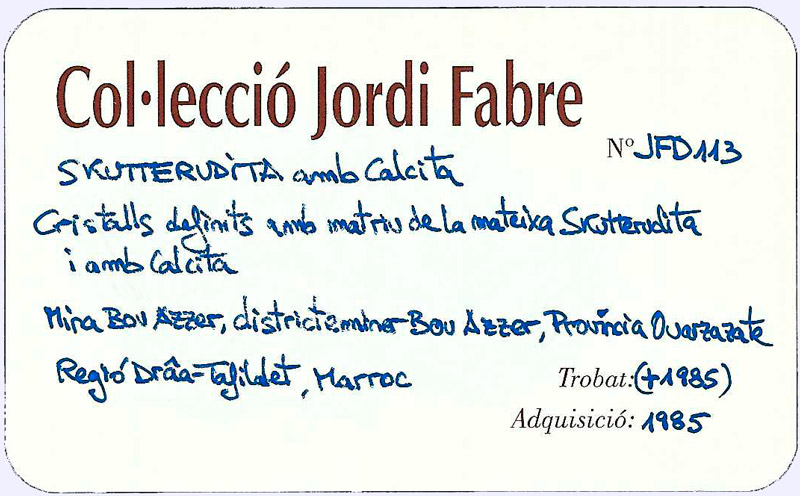 Col·lecció Jordi Fabre
Nº JFD113
SKUTTERUDITA amb Calcita
Cristalls definits amb matriu de la mateixa Skutterudita
i amb Calcita
Mina Bou Azzer, districte miner Bou Azzer, Província Ouarzazate
Regió Drâa-Tafildet, Marroc
Trobat: (±1985)
Adquisició: 1985